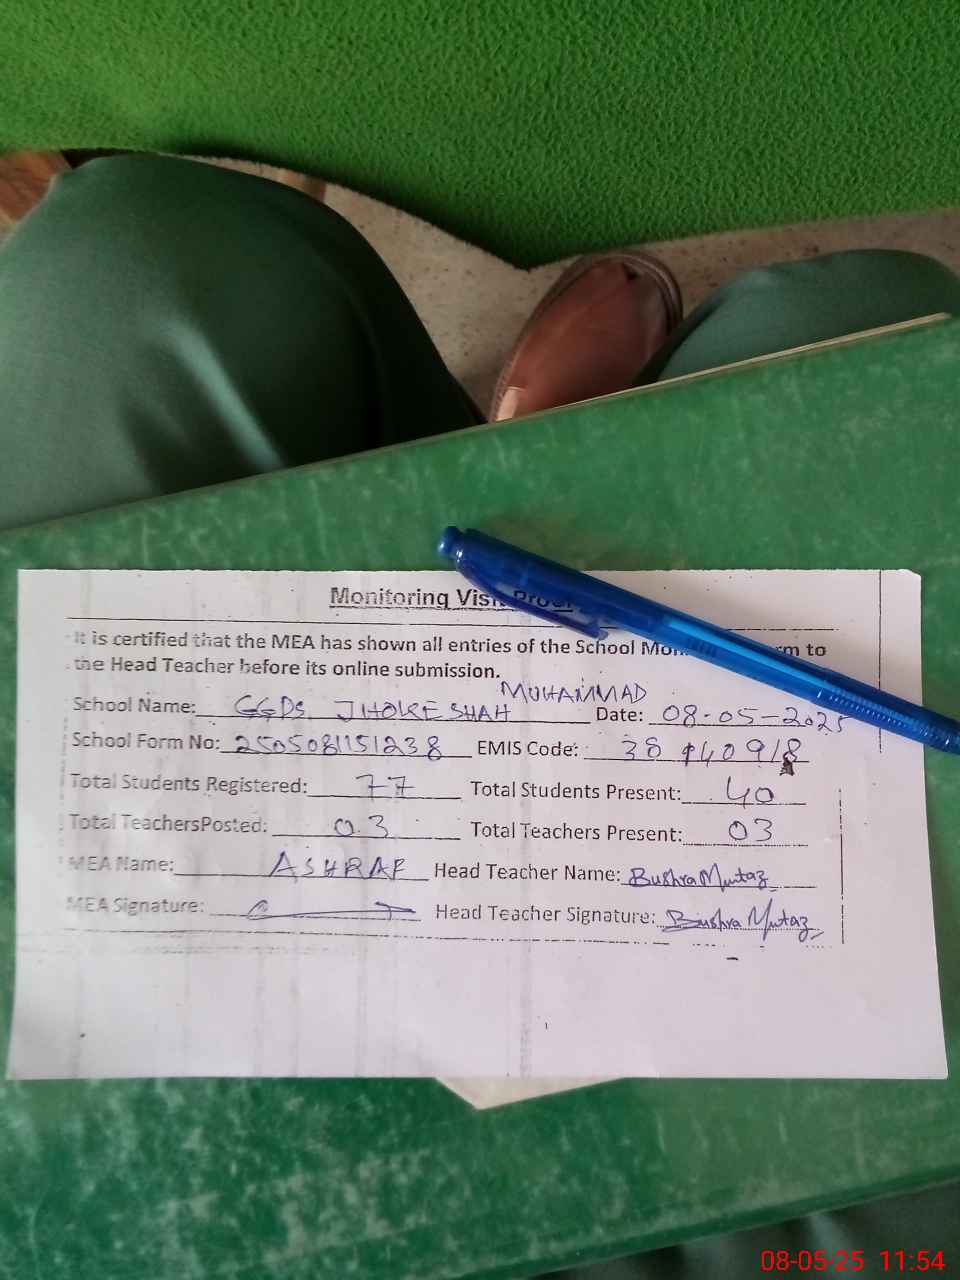 Monitoring Visit Proof
It is certified that the MEA has shown all entries of the School rm to
the Head Teacher before its online submission.
MUHAMMAD
School Name: GGPS JHOKE SHAH Date: 08-05-2025
School Form No: 2505081151238 EMIS Code:
Total Students Registered: 77 Total Students Present: 40
Total TeachersPosted: 03 Total Teachers Present: 03
MEA Name: ASHRAF Head Teacher Name: Bushra Mumtaz
MEA Signature: Head Teacher Signature: Bushra Mumtaz
08-05-25 11:54